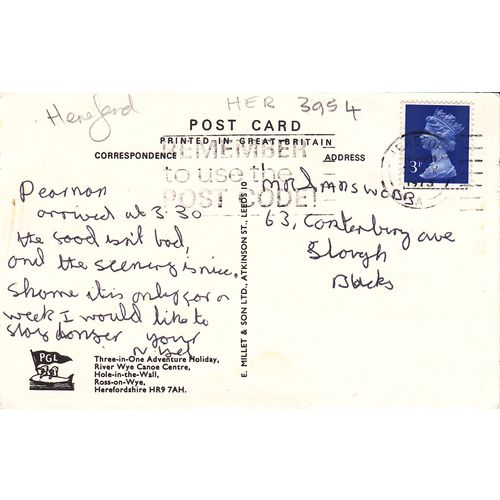 Hereford
HER 3954
POST CARD
PRINTED IN GREAT BRITAIN
CORRESPONDENCE
ADDRESS
REMEMBER
to use the
POST CODE!
3P
1973
Dear nan
arrived at 3.30
the food isn't bad,
and the scenery is nice.
Shame it is only for a
week I would like to
stay longer your
Nigel
63, Canterbury ave
Slough
Bucks
E. MILLET & SON LTD., ATKINSON ST., LEEDS 10
PGL
Three-in-One Adventure Holiday,
River Wye Canoe Centre,
Hole-in-the-Wall,
Ross-on-Wye,
Herefordshire HR9 7AH.